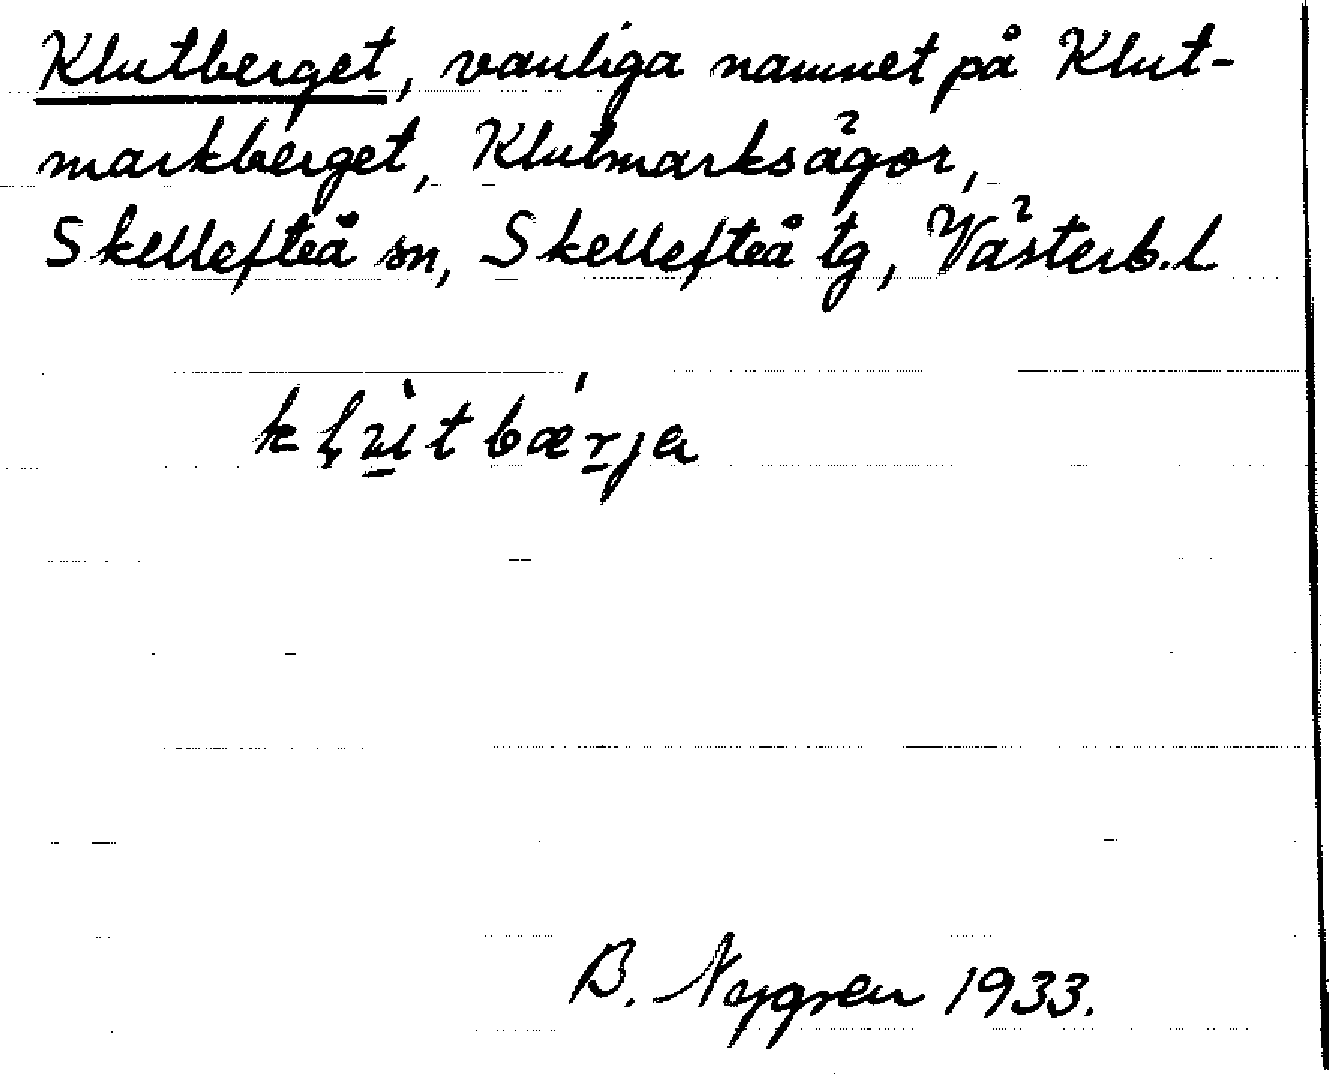 Klutberget, vanliga namnet på Klut-
markberget, Klutmarksägor,
Skellefteå sn, Skellefteå tg, Västerb. l
kḷùtbæ̀rja
B. Nygren 1933.